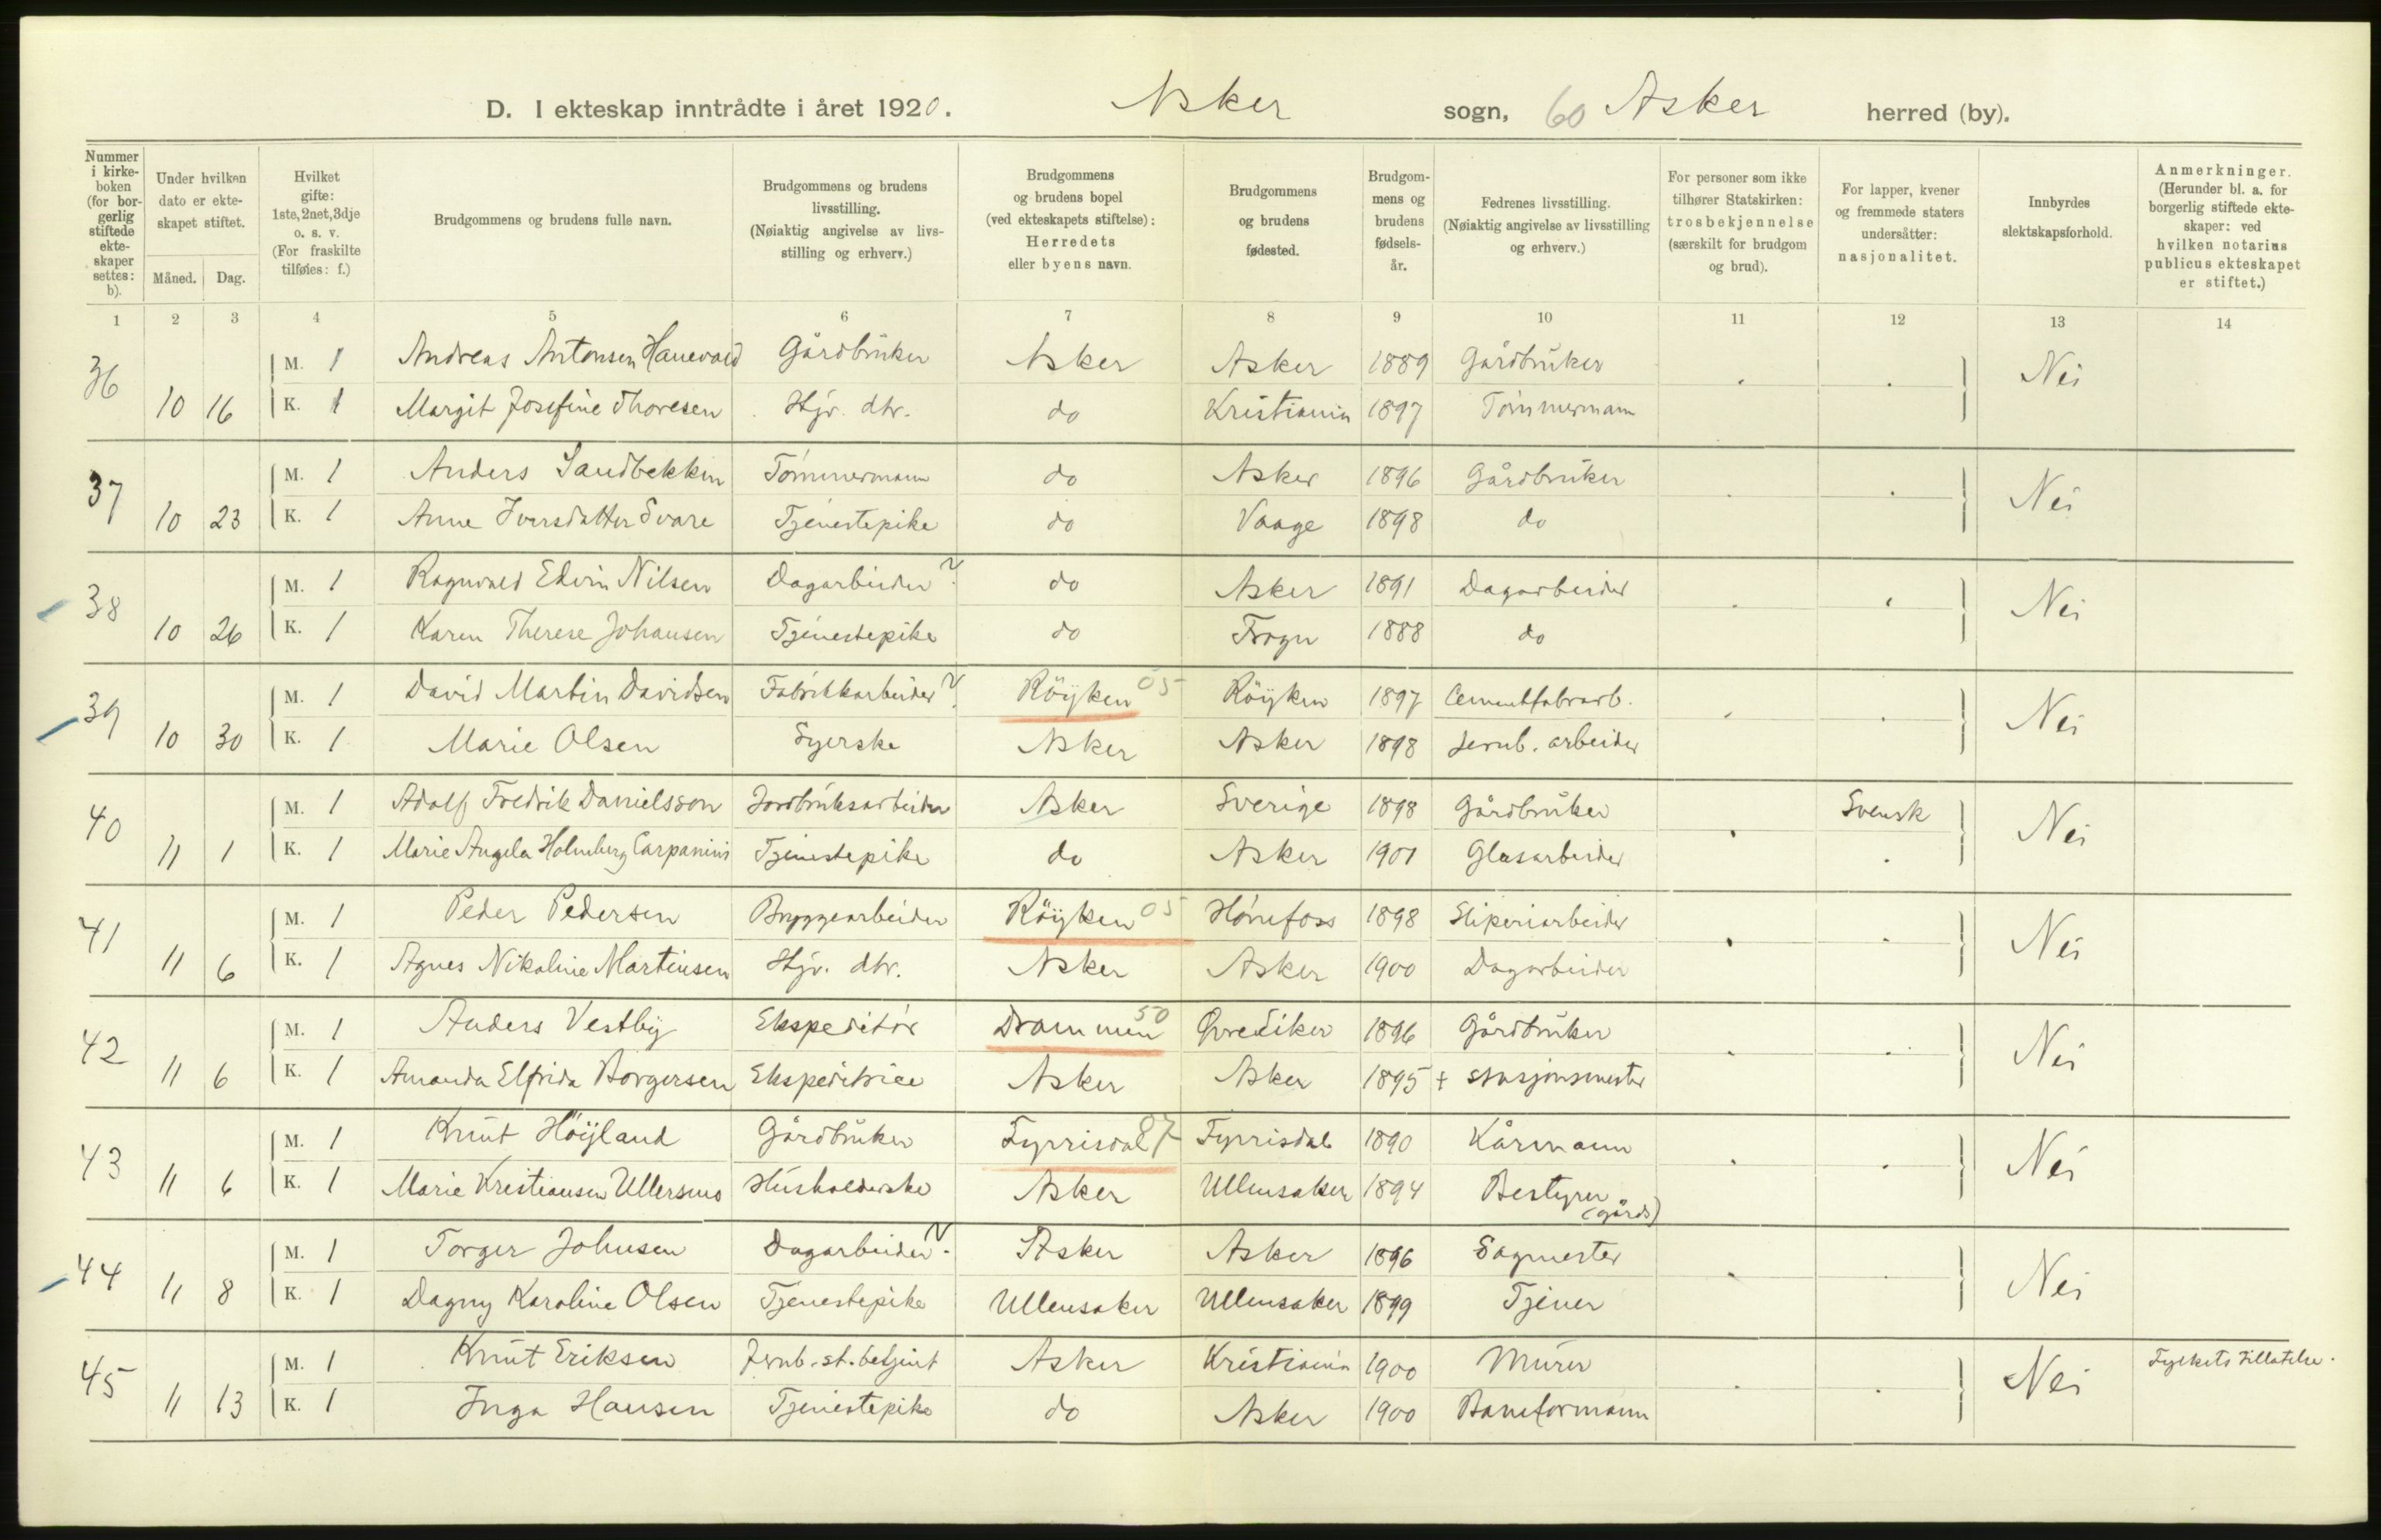 D. I ekteskap inntrådte i året 1920. Asker sogn, 60 Asker herred (by).
Nummer i kirke- boken (for bor- gerlig stiftede ekte- skaper settes: b).
Under hvilken dato er ekte- skapet stiftet.
Måned. Dag.
Hvilket gifte: 1ste, 2net, 3dje o. s. v. (For fraskilte tilføies: f.)
Brudgommens og brudens fulle navn.
Brudgommens og brudens livsstilling. (Nøiaktig angivelse av livs- stilling og erhverv.)
Brudgommens og brudens bopel (ved ekteskapets stiftelse): Herredets eller byens navn.
Brudgommens og brudens fødested.
Brudgom- mens og brudens fødsels- år.
Fedrenes livsstilling. (Nøiaktig angivelse av livsstilling og erhverv.)
For personer som ikke tilhører Statskirken: trosbekjennelse (særskilt for brudgom og brud).
For lapper, kvener og fremmede staters undersåtter: nasjonalitet.
Innbyrdes slektskapsforhold.
Anmerkninger. (Herunder bl. a. for borgerlig stiftede ekte- skaper: ved hvilken notarius publicus ekteskapet er stiftet.)
1 2 3 4 5 6 7 8 9 10 11 12 13 14
36 M. 1 Andreas Antonsen Hanevold Gårdbruker Asker Asker 1889 Gårdbruker Nei
10 16 K. 1 Margit Josefine Thoresen Hjv. dtr. do Kristiania 1897 Tømmermann
37 M. 1 Anders Sandbekken Tømmermann do Asker 1896 Gårdbruker Nei
10 23 K. 1 Anne Iversdatter Svare Tjenestepike do Vaage 1898 do
38 M. 1 Ragnvald Edvin Nilsen Dagarbeider ? do Asker 1891 Dagarbeider Nei
10 26 K. 1 Karen Therese Johansen Tjenestepike do Frogn 1888 do
39 M. 1 David Martin Davidsen Fabrikkarbeider ? Röyken 05 Röyken 1897 Cementfabrarb. Nei
10 30 K. 1 Marie Olsen Syerske Asker Asker 1898 Jernb. arbeider
40 M. 1 Adolf Fredrik Danielsson Jordbruksarbeider Asker Sverige 1898 Gårdbruker Svensk Nei
11 1 K. 1 Marie Angela Holmberg Carpanini Tjenestepike do Asker 1901 Glasarbeider
41 M. 1 Peder Pedersen Bryggearbeider Röyken 05 Hønefoss 1898 Sliperiarbeider Nei
11 6 K. 1 Agnes Nikoline Martinsen Hjv. dtr. Asker Asker 1900 Dagarbeider
42 M. 1 Anders Vestby Ekspeditør Drammen 50 Øvre Eiker 1896 Gårdbruker Nei
11 6 K. 1 Amanda Elfrida Borgersen Ekspeditrice Asker Asker 1895 + stasjonsmester
43 M. 1 Knut Höyland Gårdbruker Fyrrisdal 87 Fyrrisdal 1890 Kårmann Nei
11 6 K. 1 Marie Kristiansen Ullersmo Husholderske Asker Ullensaker 1894 Bestyrer
(gårds)
44 M. 1 Torger Johnsen Dagarbeider ? Asker Asker 1896 Sagmester Nei
11 8 K. 1 Dagny Karoline Olsen Tjenestepike Ullensaker Ullensaker 1899 Tjener
45 M. 1 Knut Eriksen Jernb. st. betjent Asker Kristiania 1900 Murer Nei Fylkets tillatelse.
11 13 K. 1 Inga Hansen Tjenestepike do Asker 1900 Baneformann